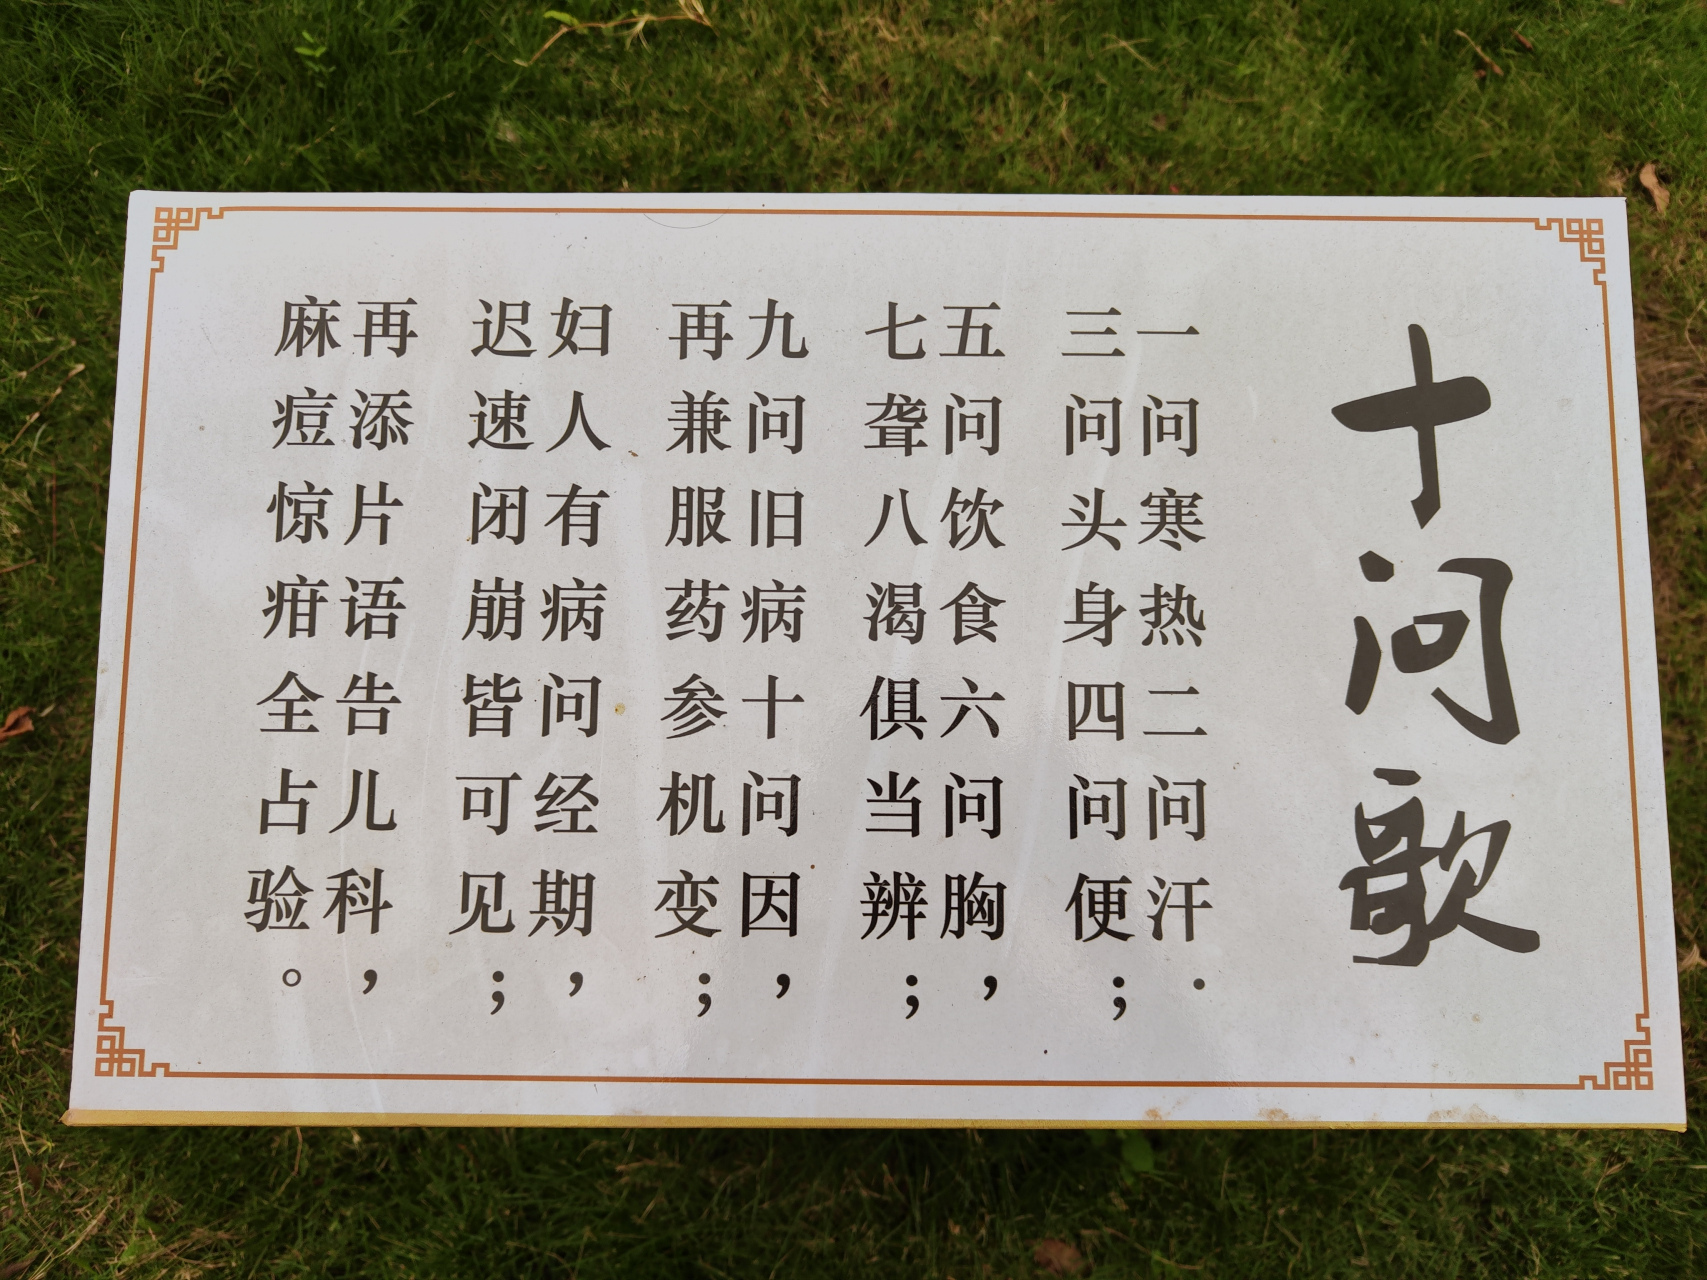 十问歌
一问寒热二问汗.
三问头身四问便；
五问饮食六问胸，
七聋八渴俱当辨；
九问旧病十问因，
再兼服药参机变；
妇人有病问经期，
迟速闭崩皆可见；
再添片语告儿科，
麻痘惊疳全占验。